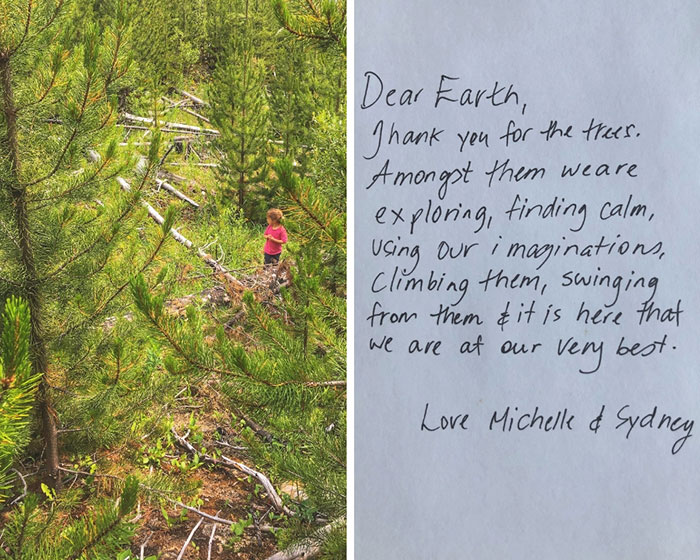 Dear Earth,
Thank you for the trees.
Amongst them we are
exploring, finding calm,
using our imaginations,
Climbing them, swinging
from them & it is here that
we are at our very best.
Love Michelle & Sydney